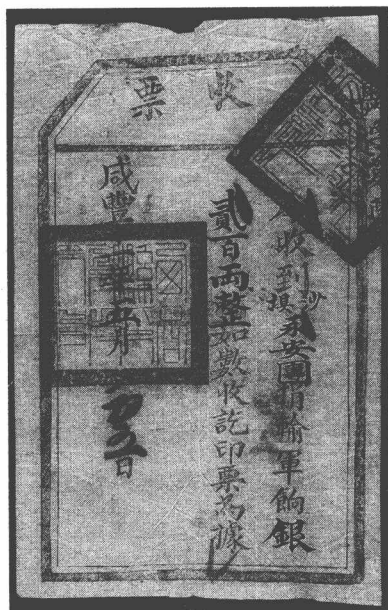 收票
收到沙坝永安團捐輸軍餉銀
貳百兩整如數收訖印票為據
咸豐年五月日